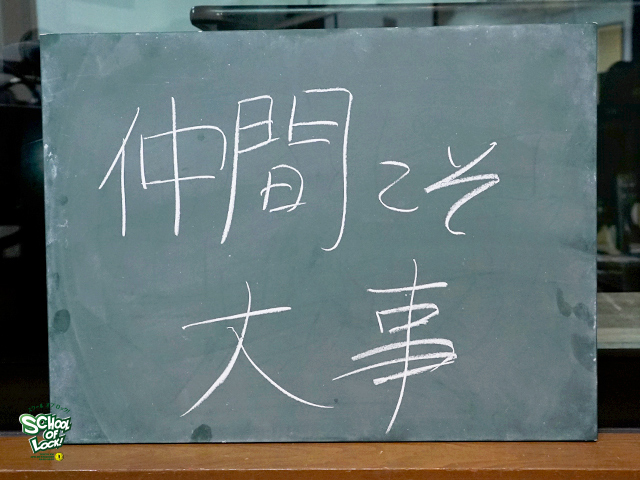 仲間こそ
大事
SCHOOL
OF
LOCK!